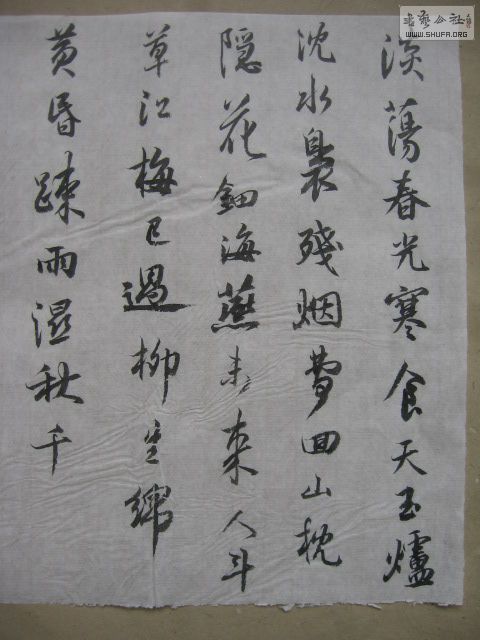 淡蕩春光寒食天玉爐
沈水裊殘烟夢回山枕
隱花鈿海燕未來人斗
草江梅已過柳生綿
黄昏踈雨濕秋千
書藝公社
WWW.SHUFA.ORG